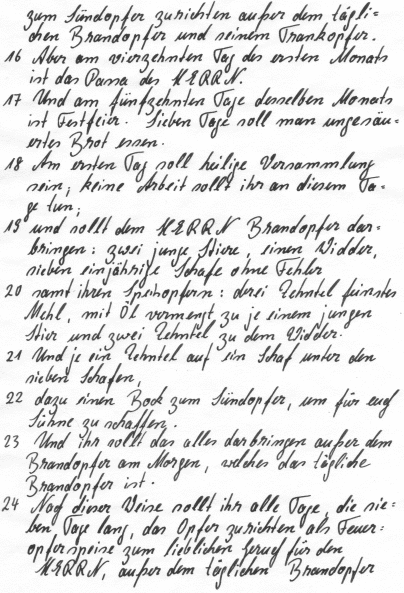 zum Sündopfer zurichten außer dem tägli-
chen Brandopfer und seinem Trankopfer.
16 Aber am vierzehnten Tag des ersten Monats
ist das Passa des HERRN.
17 Und am fünfzehnten Tage desselben Monats
ist Festfeier. Sieben Tage soll man ungesäu-
ertes Brot essen.
18 Am ersten Tag soll heilige Versammlung
sein; keine Arbeit sollt ihr an diesem Ta-
ge tun;
19 und sollt dem HERRN Brandopfer dar-
bringen: zwei junge Stiere, einen Widder,
sieben einjährige Schafe ohne Fehler
20 samt ihren Speisopfern: drei Zehntel feinstes
Mehl, mit Öl vermengt zu je einem jungen
Stier und zwei Zehntel zu dem Widder.
21 Und je ein Zehntel auf ein Schaf unter den
sieben Schafen,
22 dazu einen Bock zum Sündopfer, um für euch
Sühne zu schaffen.
23 Und ihr sollt das alles darbringen außer dem
Brandopfer am Morgen, welches das tägliche
Brandopfer ist.
24 Nach dieser Weise sollt ihr alle Tage, die sie-
ben Tage lang, das Opfer zurichten als Feuer-
opferspeise zum lieblichen Geruch für den
HERRN, außer dem täglichen Brandopfer